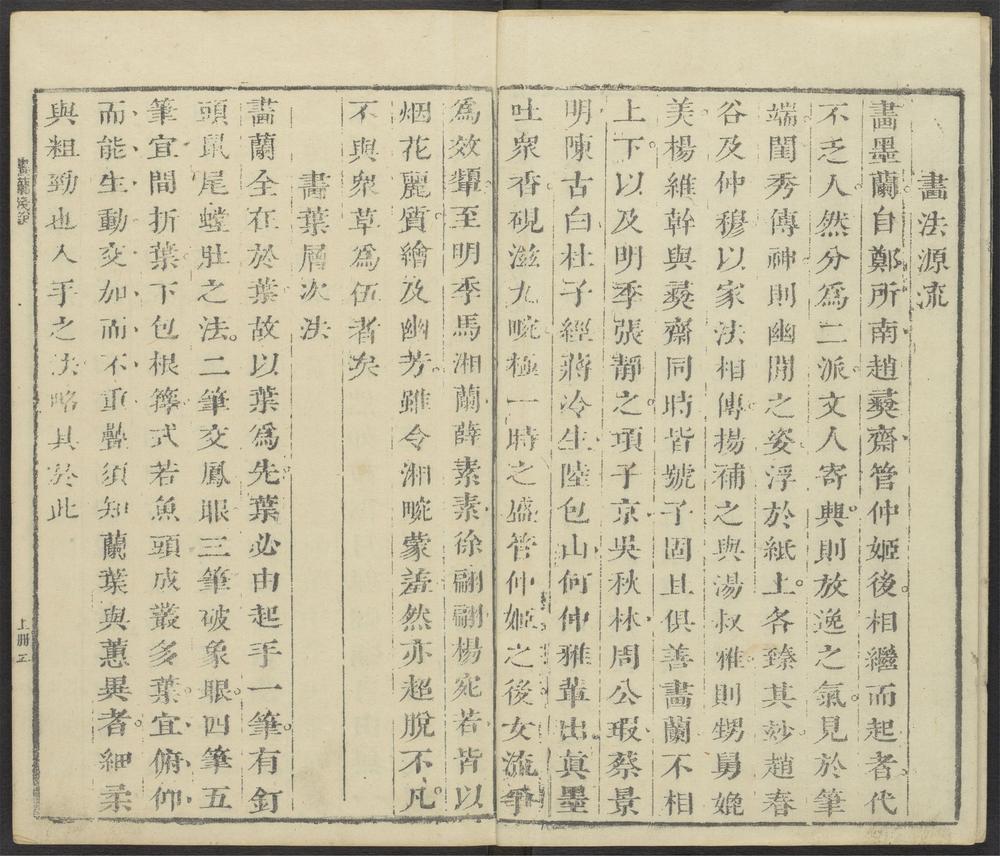 畫法源流
畫墨蘭自鄭所南趙彝齋管仲姬後相繼而起者代
不乏人然分爲二派文人寄興則放逸之氣見於筆
端閨秀傳神則幽閒之姿浮於紙上各臻其妙趙春
谷及仲穆以家法相傳揚補之與湯叔雅則甥舅媲
美楊維幹與彝齋同時皆號子固且俱善畫蘭不相
上下以及明季張靜之項子京吳秋林周公瑕蔡景
明陳古白杜子經蔣冷生陸包山何仲雅輩出眞墨
吐衆香硯滋九畹極一時之盛管仲姬之後女流爭
爲效顰至明季馬湘蘭薛素素徐翩翩楊宛若皆以
烟花麗質繪及幽芳雖令湘畹蒙羞然亦超脫不凡
不與衆草爲伍者矣
畫葉層次法
畵蘭全在於葉故以葉爲先葉必由起手一筆有釘
頭鼠尾螳肚之法二筆交鳳眼三筆破象眼四筆五
筆宜間折葉下包根籜式若魚頭成叢多葉宜俯仰
而能生動交加而不重疊須知蘭葉與蕙異者細柔
與粗勁也入手之法略具於此
畫蘭淺說
上册 五